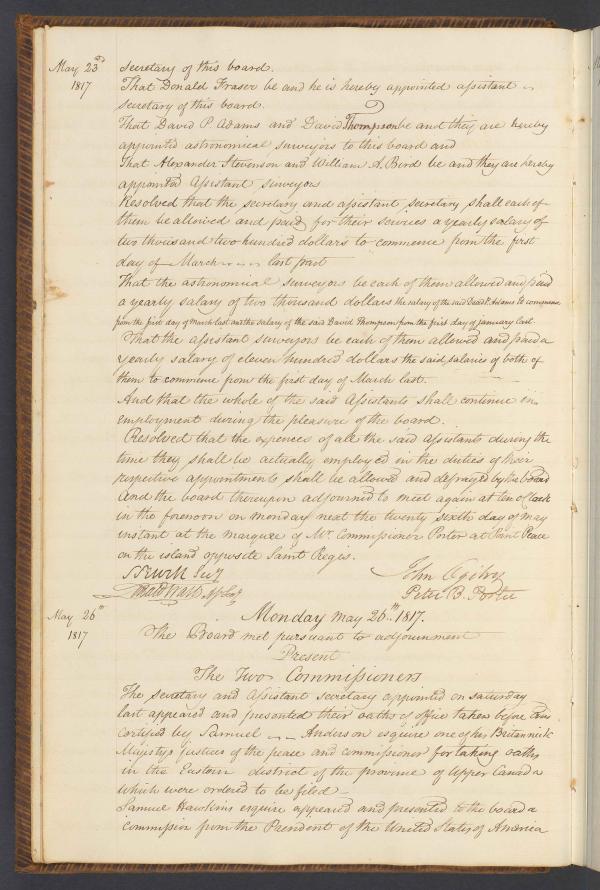 May 23d
1817
secretary of this board.
That Donald Fraser be and he is hereby appointed assistant
secretary of this board.
That David P. Adams and David Thompson be and they are hereby
appointed astronomical surveyors to this board and
That Alexander Stevenson and William A. Bird be and they are hereby
appointed assistant surveyors
Resolved that the secretary and assistant secretary shall each of
them be allowed and paid for their services a yearly salary of
two thousand two hundred dollars to commence from the first
day of March last past
That the astronomical surveyors be each of them allowed and paid
a yearly salary of two thousand dollars the salary of the said David P. Adams to commence
from the first day of March last and the salary of the said David Thompson from the first day of january last
That the assistant surveyors be each of them allowed and paid a
yearly salary of eleven hundred dollars the said salaries of both of
them to commence from the first day of March last.
And that the whole of the said Assistants shall continue in
employment during the pleasure of the board.
Resolved that the expences of all the said assistants during the
time they shall be actually employed in the duties of their
respective appointments shall be allowed and defrayed by the board
And the board thereupon adjourned to meet again at ten o'Clock
in the forenoon on monday next the twenty sixth day of may
instant at the marquee of Mr. Commissioner Porter at Point Peace
on the island opposite Saint Regis.
Secy John Ogilvy
Donald Fraser As Secy Peter B. Porter
May 26th
1817
Monday may 26th. 1817.
The Board met pursuant to adjournment
Present
The Two Commissioners
The secretary and assistant secretary appointed on saturday
last appeared and presented their oaths of office taken before and
certified by Samuel Anderson esquire one of his Britannick
Majestys justices of the peace and commissioner for taking oaths
in the Eastern district of the province of Upper Canada
which were ordered to be filed
Samuel Hawkins esquire appeared and presented to the board a
commission from the President of the United States of America